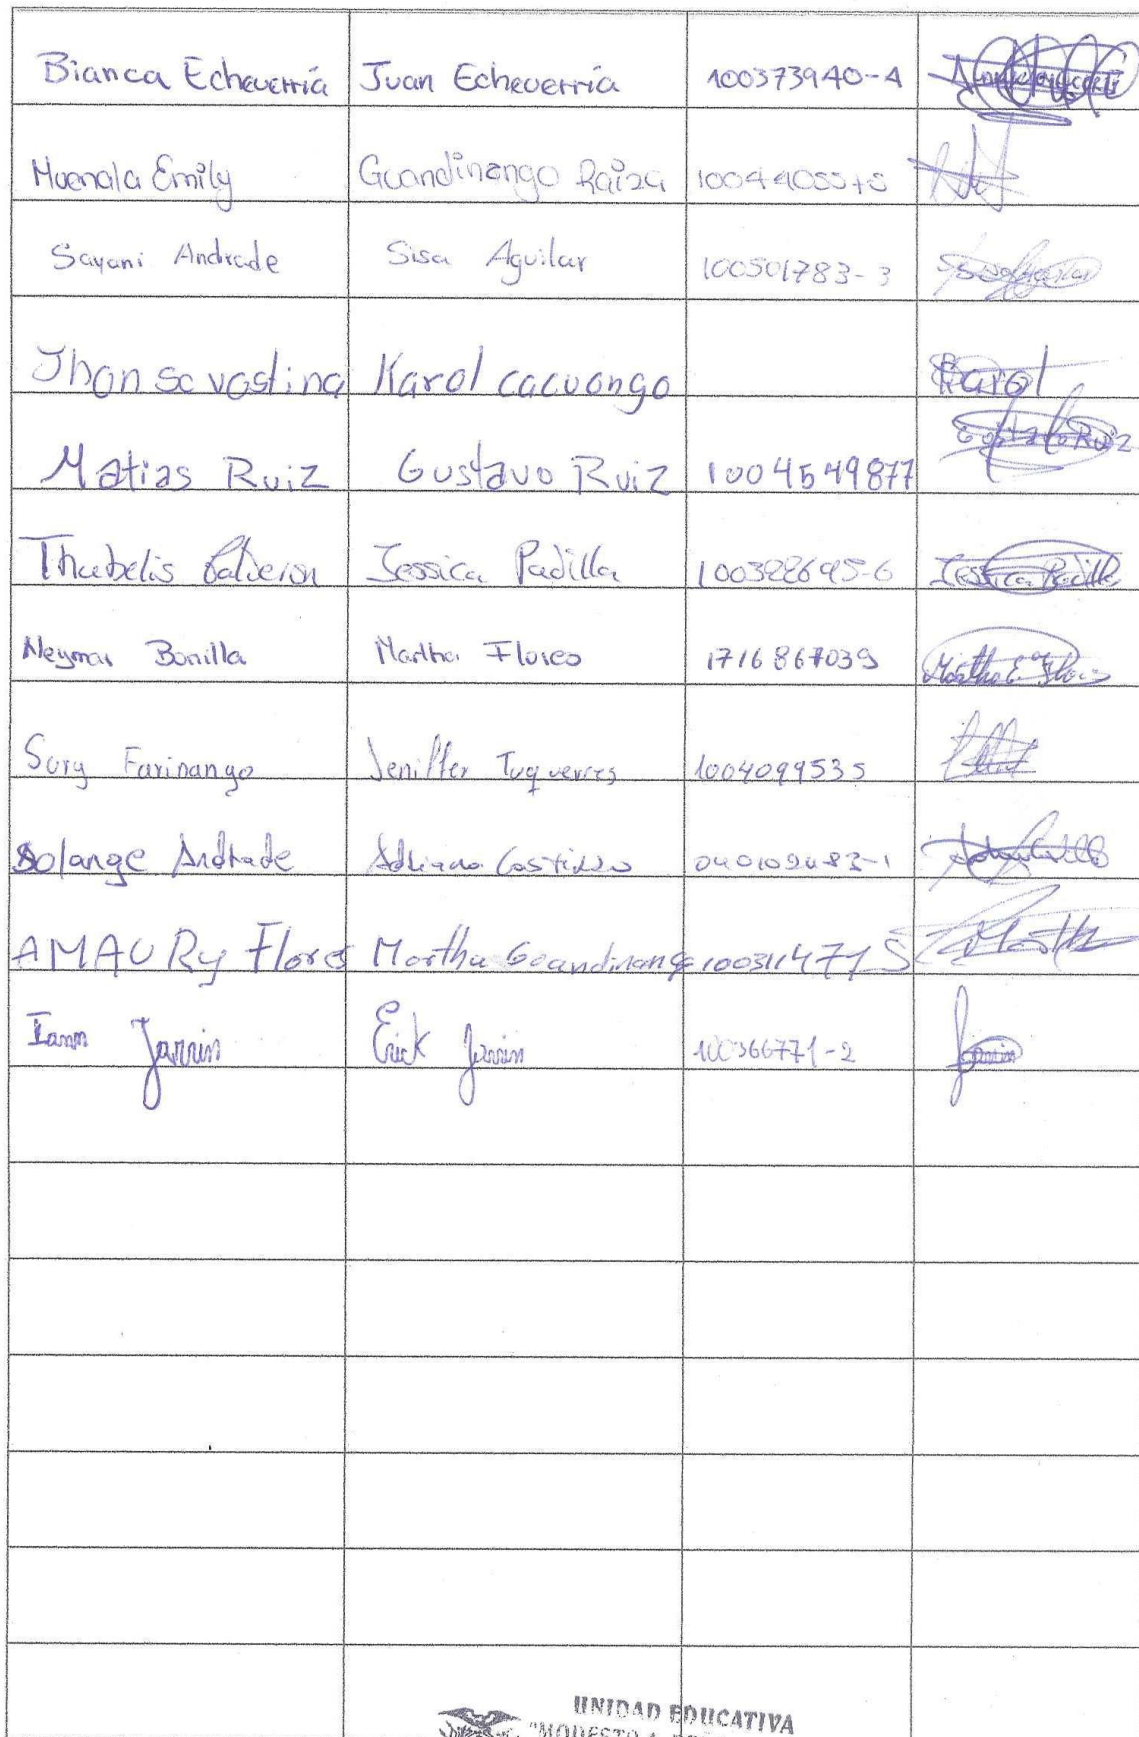 Bianca Echeverría Juan Echeverría 100373940-4
Muenala Emily Guandinango Raiza
Sayani Andrade Sisa Aguilar 100501783-3
Jhon Karol cacuango Karol
Matias Ruiz Gustavo Ruiz 1004549877 Gustavo Ruiz
Jessica Padilla 100328695-6 Jessica Padilla
Neymar Bonilla Martha Flores 1716867039 Martha E. Flores
Sury Farinango Jeniffer Tuquerres 1004099535
Solange Andrade
AMAURy Flores Martha Guandinango 100311471 5 Martha
Iann Jarrin Erick Jarrin 100366771-2 Jarrin
UNIDAD EDUCATIVA
"MODESTO A.